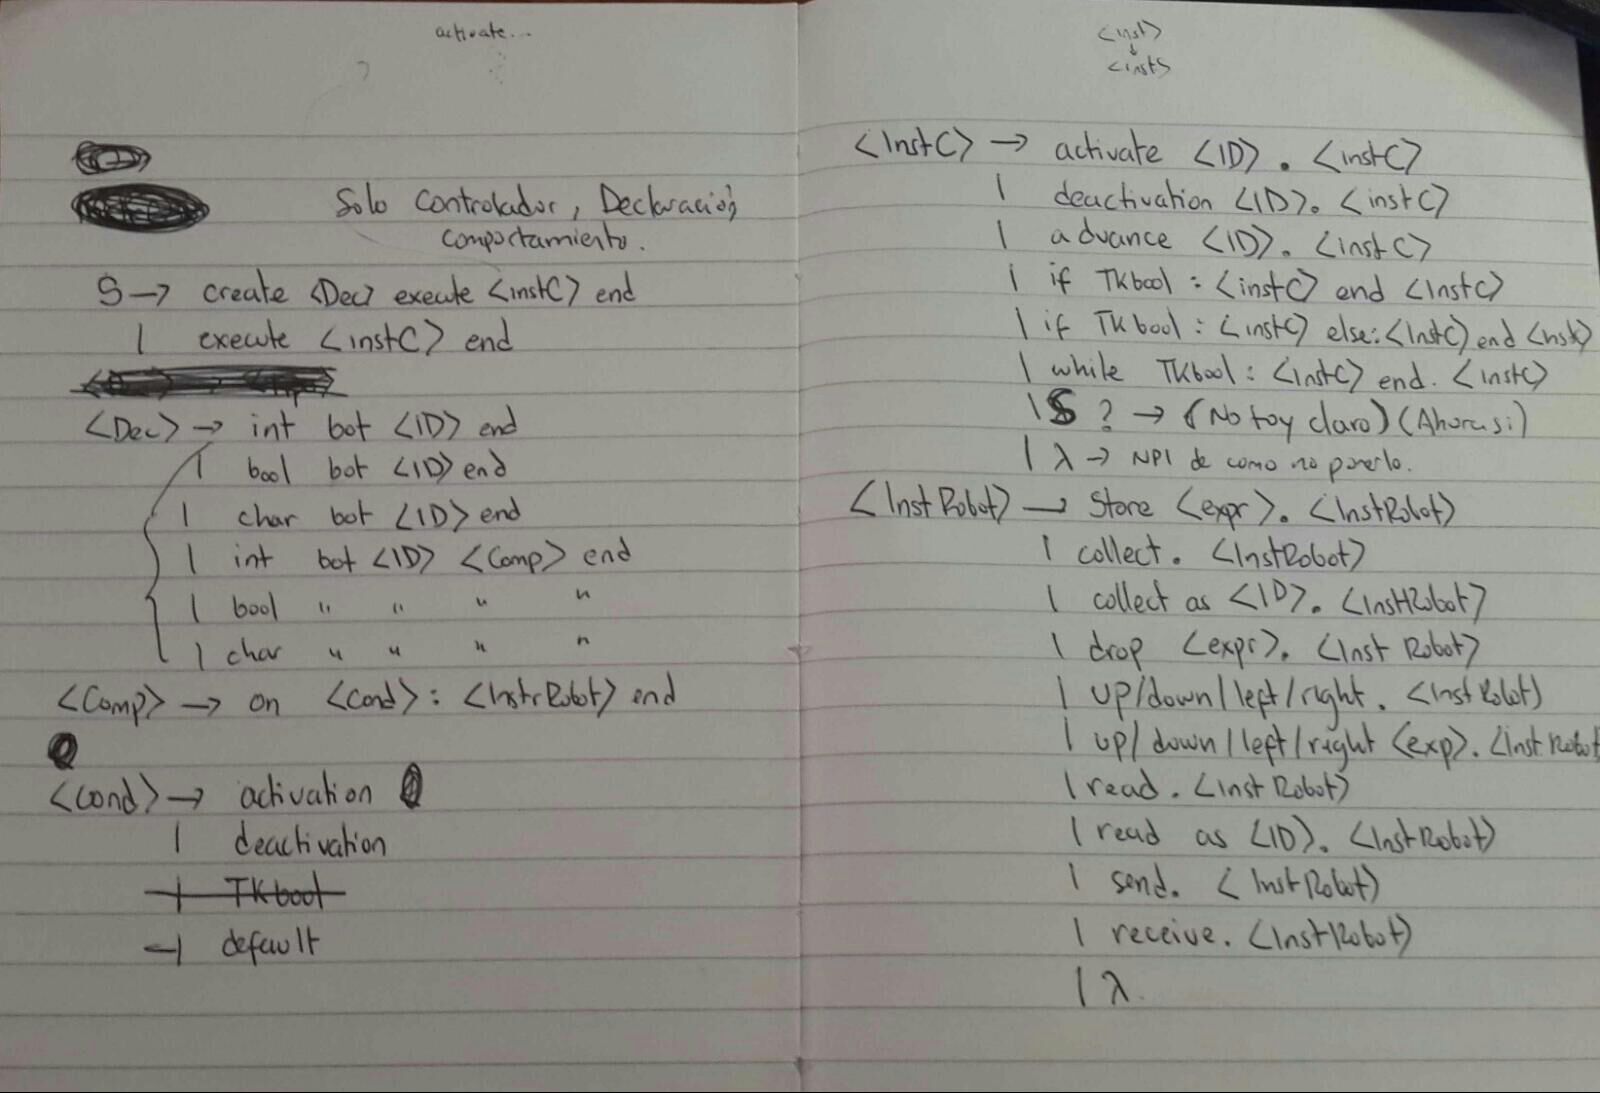 activate...
Solo Controlador, Declaración,
comportamiento.
S → create <Dec> execute <instC> end
| execute <instC> end
<Dec> → int bot <ID> end
| bool bot <ID> end
| char bot <ID> end
| int bot <ID> <Comp> end
| bool " " " "
| char " " " "
<Comp> → on <Cond> : <InstrRobot> end
<Cond> → activation
| deactivation
| TKbool
| default
<inst>
↓
<instS
<InstC> → activate <ID> . <instC>
| deactivation <ID>. <instC>
| advance <ID>. <instC>
| if TKbool : <instC> end <InstC>
| if TKbool : <instC> else: <InstC> end <Inst>
| while TKbool : <InstC> end. <instC>
| S ? → (No toy claro) (Ahora si)
| λ → NPI de como no ponerlo.
<InstRobot> → Store <expr>. <InstRobot>
| collect. <InstRobot>
| collect as <ID>. <InstRobot>
| drop <expr>. <Inst Robot>
| up/down/left/right. <InstRobot>
| up/down/left/right <exp>. <Inst Robot
| read. <Inst Robot>
| read as <ID>. <InstRobot>
| send. <InstRobot>
| receive. <InstRobot>
| λ.